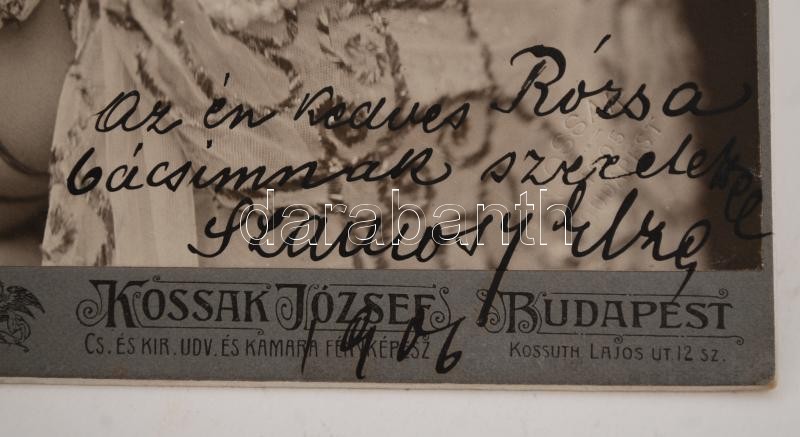 Az én kedves Rózsa
bácsimnak szeretettel
Szamosy Elza
darabanth
KOSSAK JÓZSEF BUDAPEST
CS. ÉS KIR. UDV. ÉS KAMARA FÉNYKÉPÉSZ KOSSUTH LAJOS UT 12 SZ.
1906